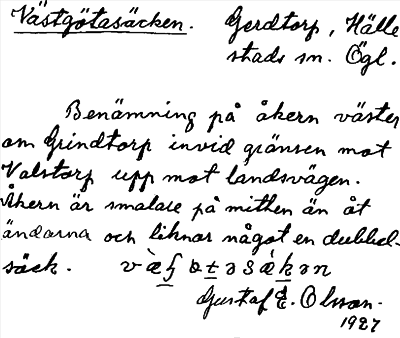 Västgötasäcken. Gerdtorp, Hälle
stads sn. Ögl.
Benämning på åkern väster
om Grindtorp invid gränsen mot
Valstorp upp mot landsvägen.
Åkern är smalare på mitten än åt
ändarna och liknar något en dubbel-
säck.
Gustaf E. Olsson.
1927